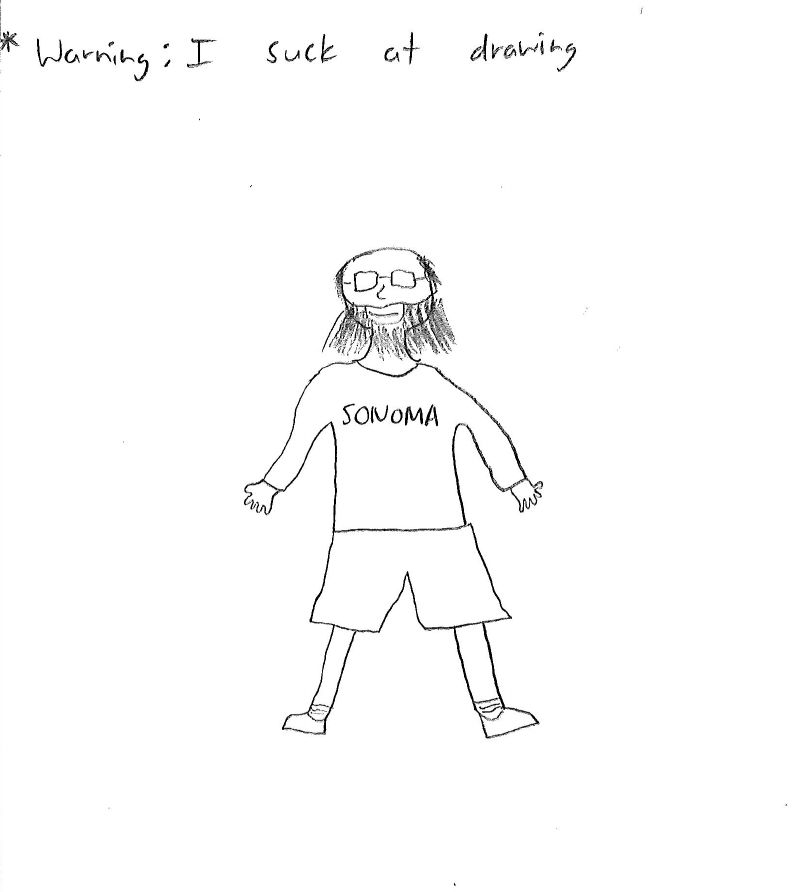 * Warning: I suck at drawing
SONOMA